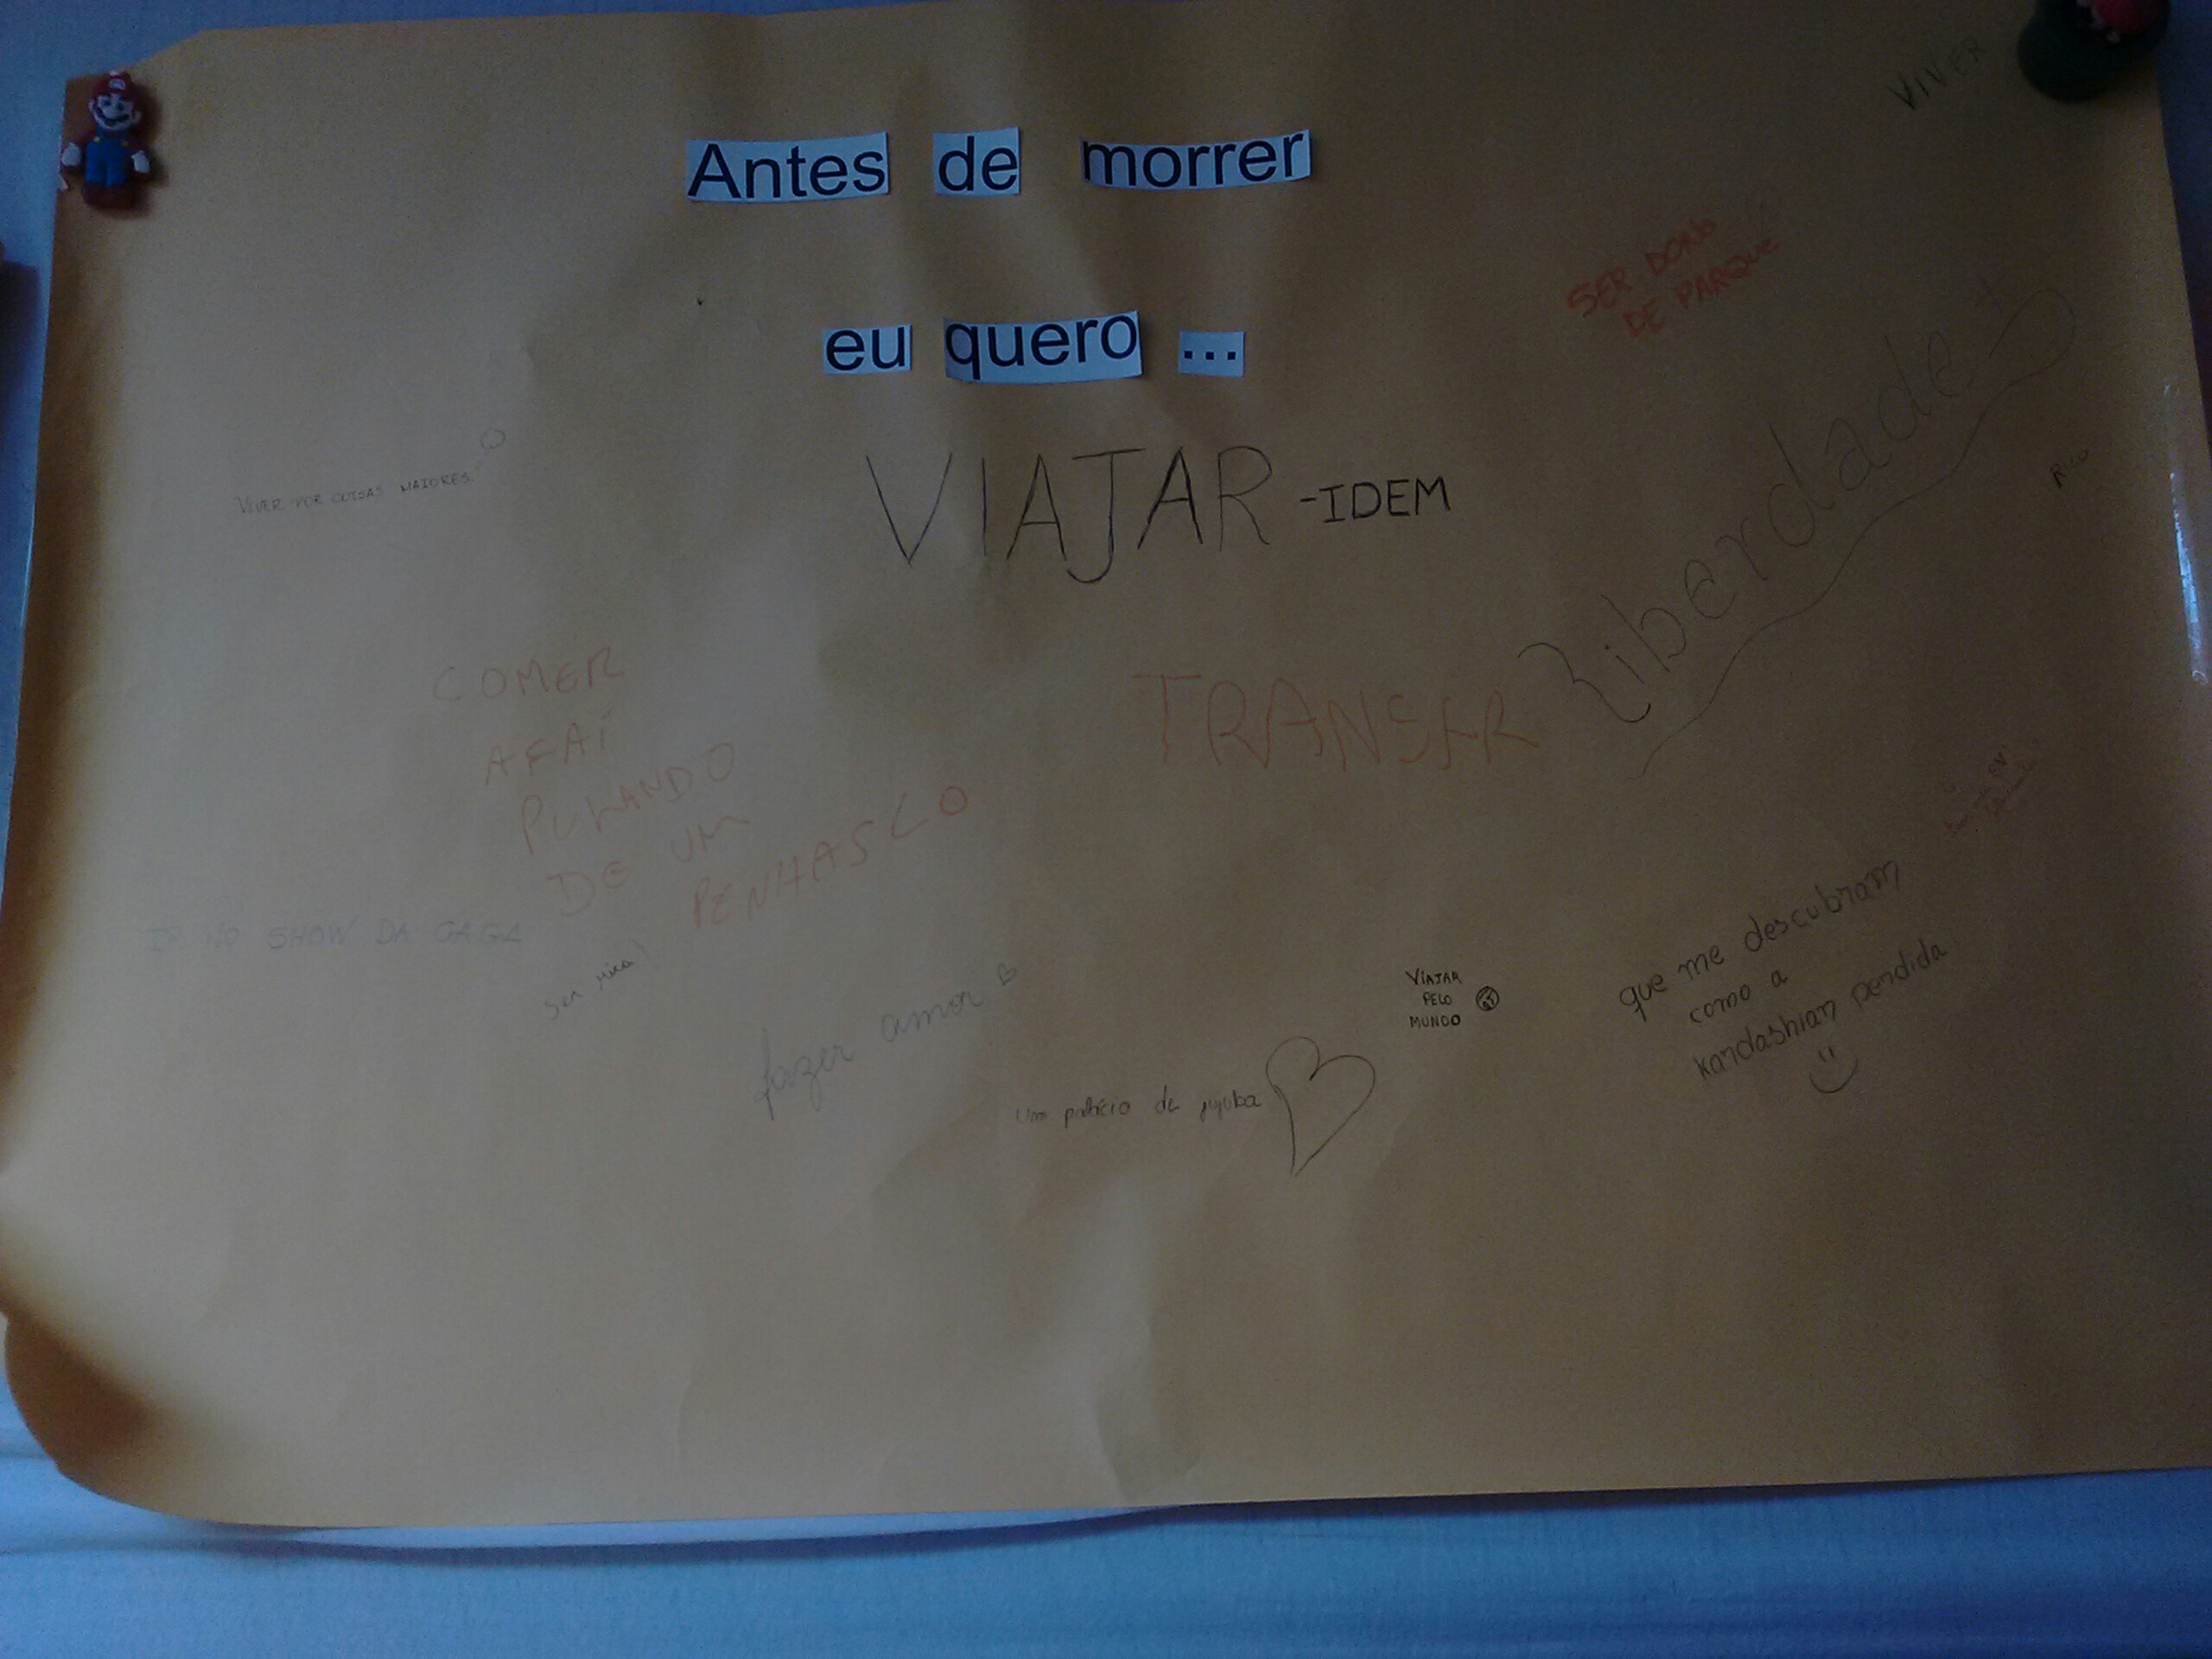 VIVER
Antes de morrer
SER DONO
DE PARQUE
eu quero ...
VIVER POR COISAS MAIORES.
VIAJAR -IDEM
Liberdade
RICO
COMER
AÇAÍ
PULANDO
DE UM
PENHASCO
TRANSER
IR NO SHOW DA GAGA
ser rica!
fazer amor
VIAJAR
PELO
MUNDO
que me descubram
como a
kardashian perdida
Um palácio de jujuba